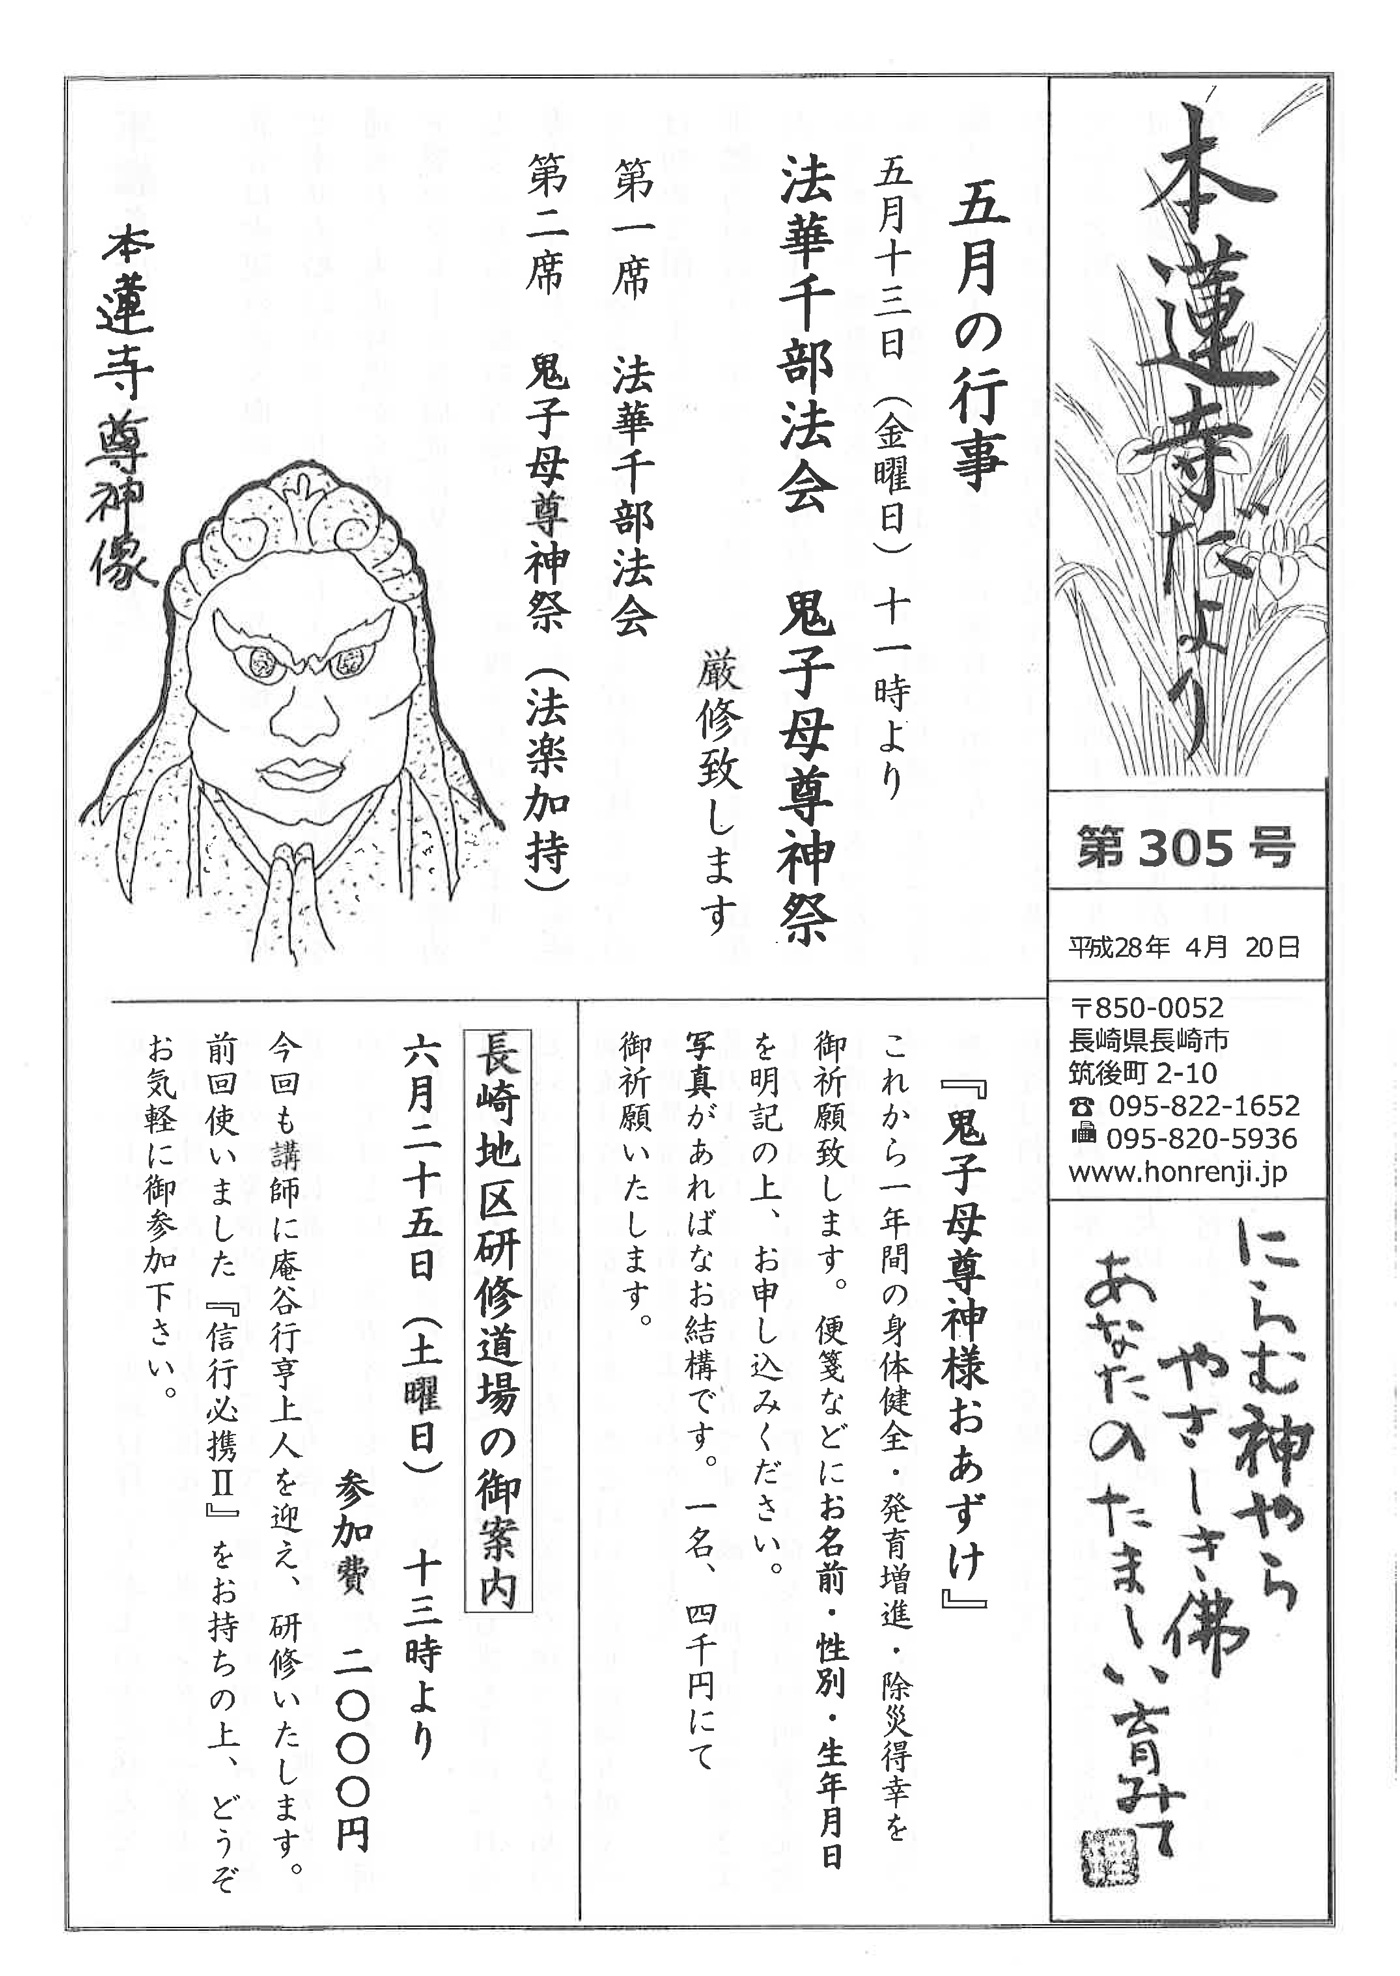 本蓮寺だより
第305号
平成28年 4月 20日
〒850-0052
長崎県長崎市
筑後町 2-10
☎ 095-822-1652
095-820-5936
www.honrenji.jp
にらむ神やら
やさしき佛
あなたのたましい育みて
五月の行事
五月十三日（金曜日）十一時より
法華千部法会 鬼子母尊神祭
厳修致します
第一席 法華千部法会
第二席 鬼子母尊神祭（法楽加持）
本蓮寺尊神像
『鬼子母尊神様おあずけ』
これから一年間の身体健全・発育増進・除災得幸を
御祈願致します。便箋などにお名前・性別・生年月日
を明記の上、お申し込みください。
写真があればなお結構です。一名、四千円にて
御祈願いたします。
長崎地区研修道場の御案内
六月二十五日（土曜日） 十三時より
参加費 二〇〇〇円
今回も講師に庵谷行亨上人を迎え、研修いたします。
前回使いました『信行必携Ⅱ』をお持ちの上、どうぞ
お気軽に御参加下さい。